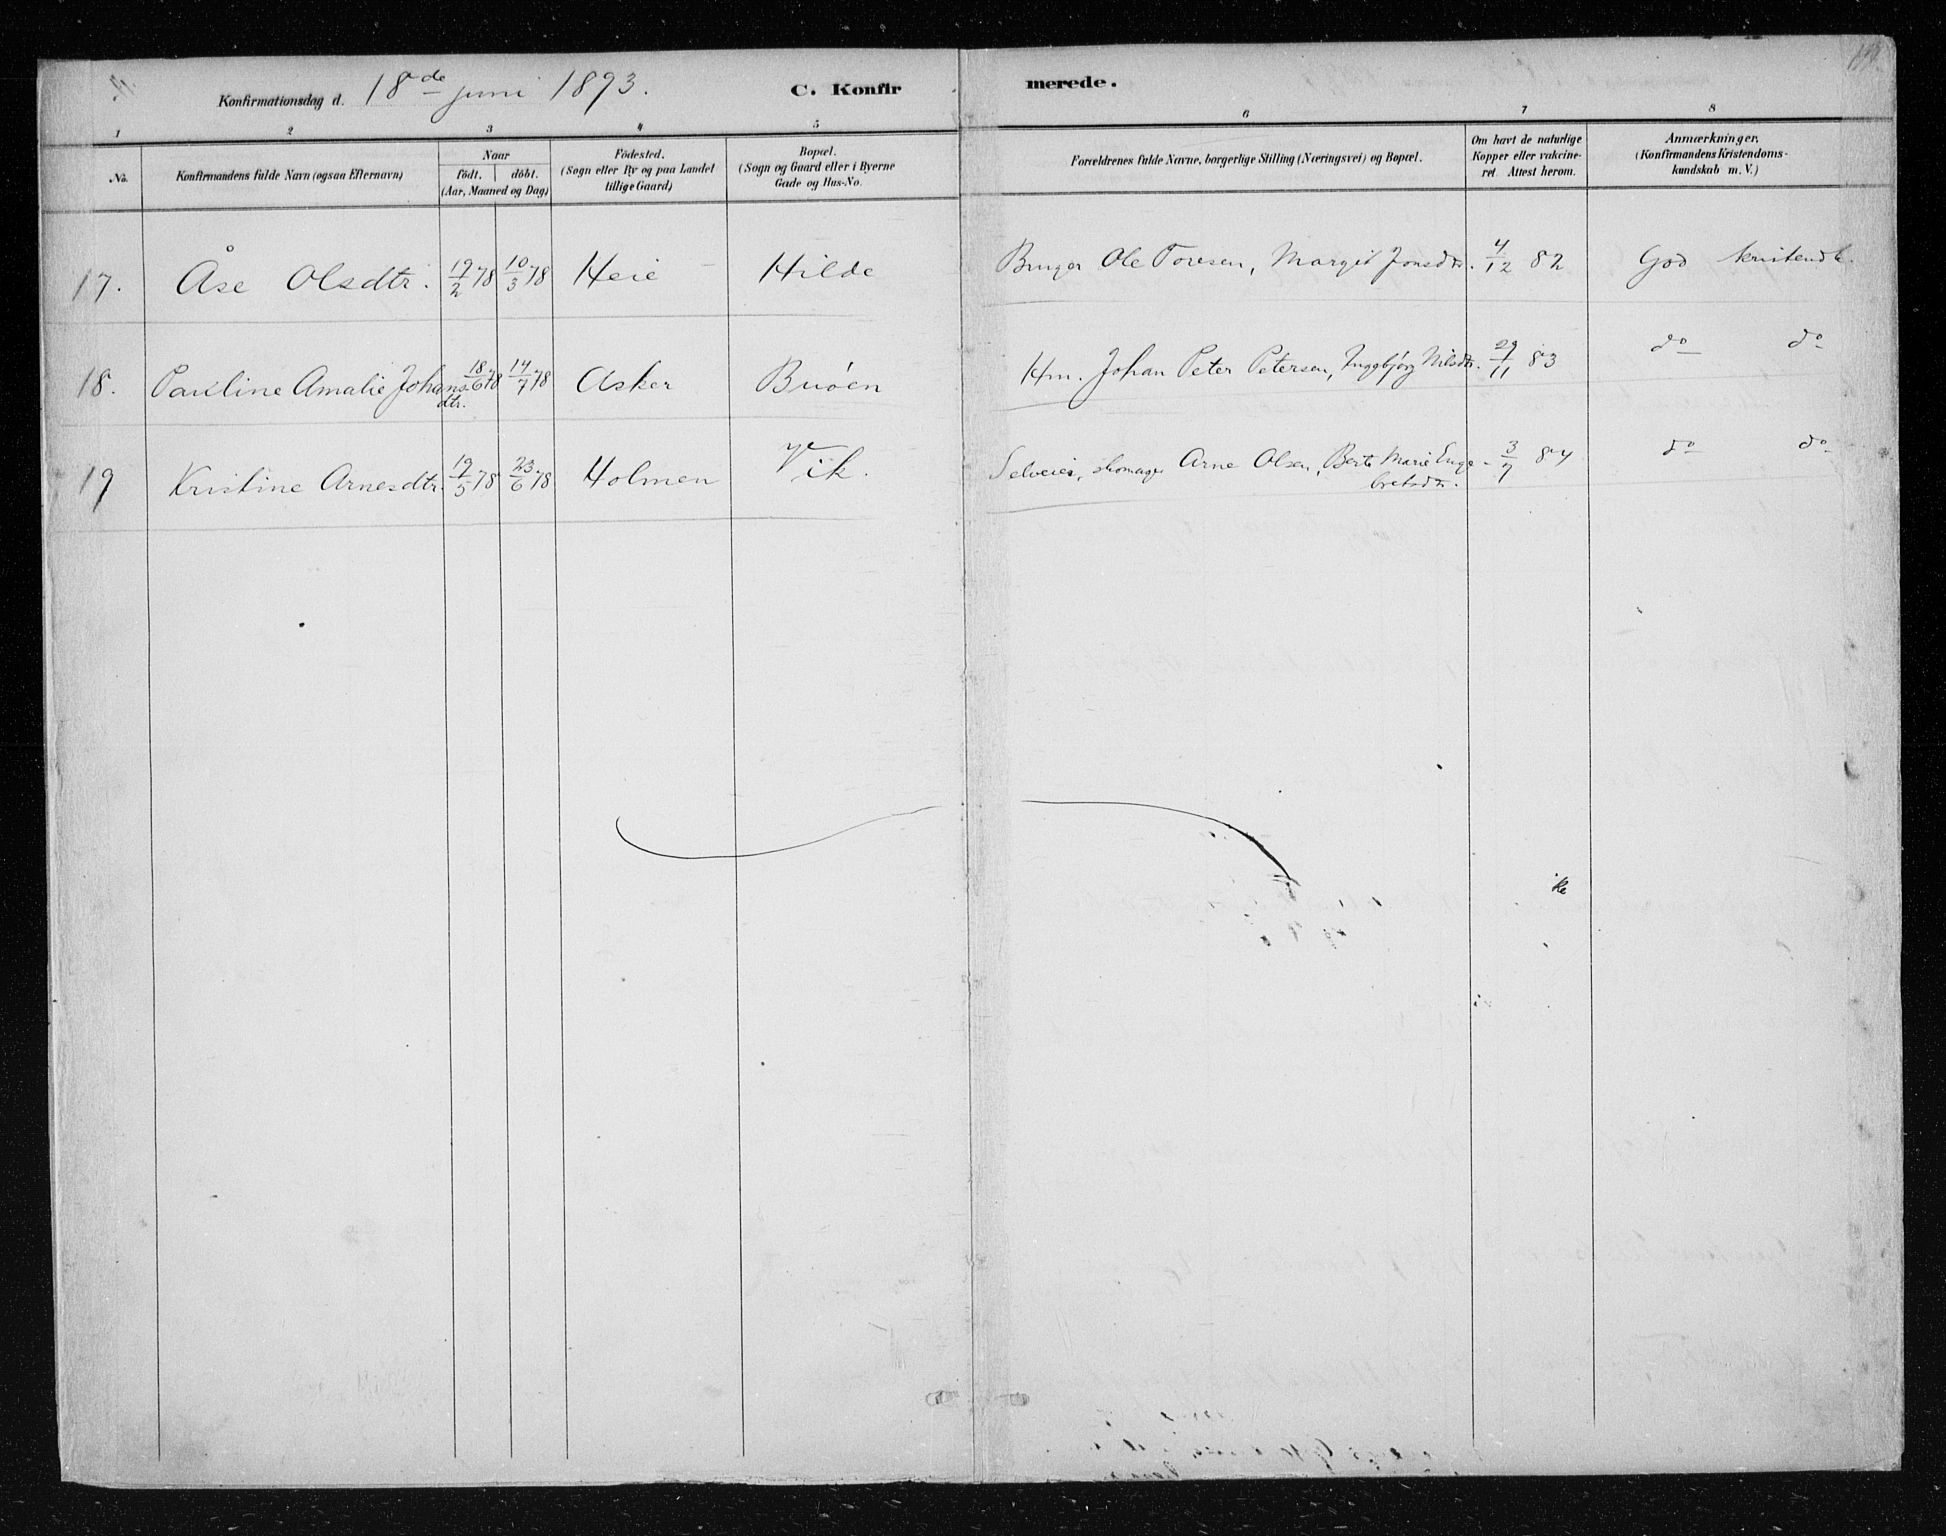 Konfirmationsdag d. 18de juni 1893. C. Konfir merede.
1 2 3 4 5 6 7 8
No. Konfirmandens fulde Navn (ogsaa Efternavn) Naar födt. döbt. (Aar, Maaned og Dag) Födested. (Sogn eller By og paa Landet tillige Gaard) Bopæl. (Sogn og Gaard eller i Byerne Gade og Hus-No. Forældrenes fulde Navne, borgerlige Stilling (Næringsvei) og Bopæl. Om havt de naturlige Kopper eller vakcineret. Attest herom. Anmærkninger. (Konfirmandens Kristendomskundskab m. V.)
17. Åse Olsdtr. 19/2 78 10/3 78 Heie Hilde Bruger Ole Toresen, Margit Jonsdtr. 4/12 82 God kristendk.
18. Pauline Amalie Johansdtr. 18/6 78 14/7 78 Asker Buöen Hm. Johan Peter Petersen, Inggbjørg Nilsdtr. 29/11 83 do do
19 Kristine Arnesdtr. 19/5 78 23/6 78 Holmen Vik. Selveier, skomager Arne Olsen, Berte Marie Engebretsdtr. 3/7 84 do do